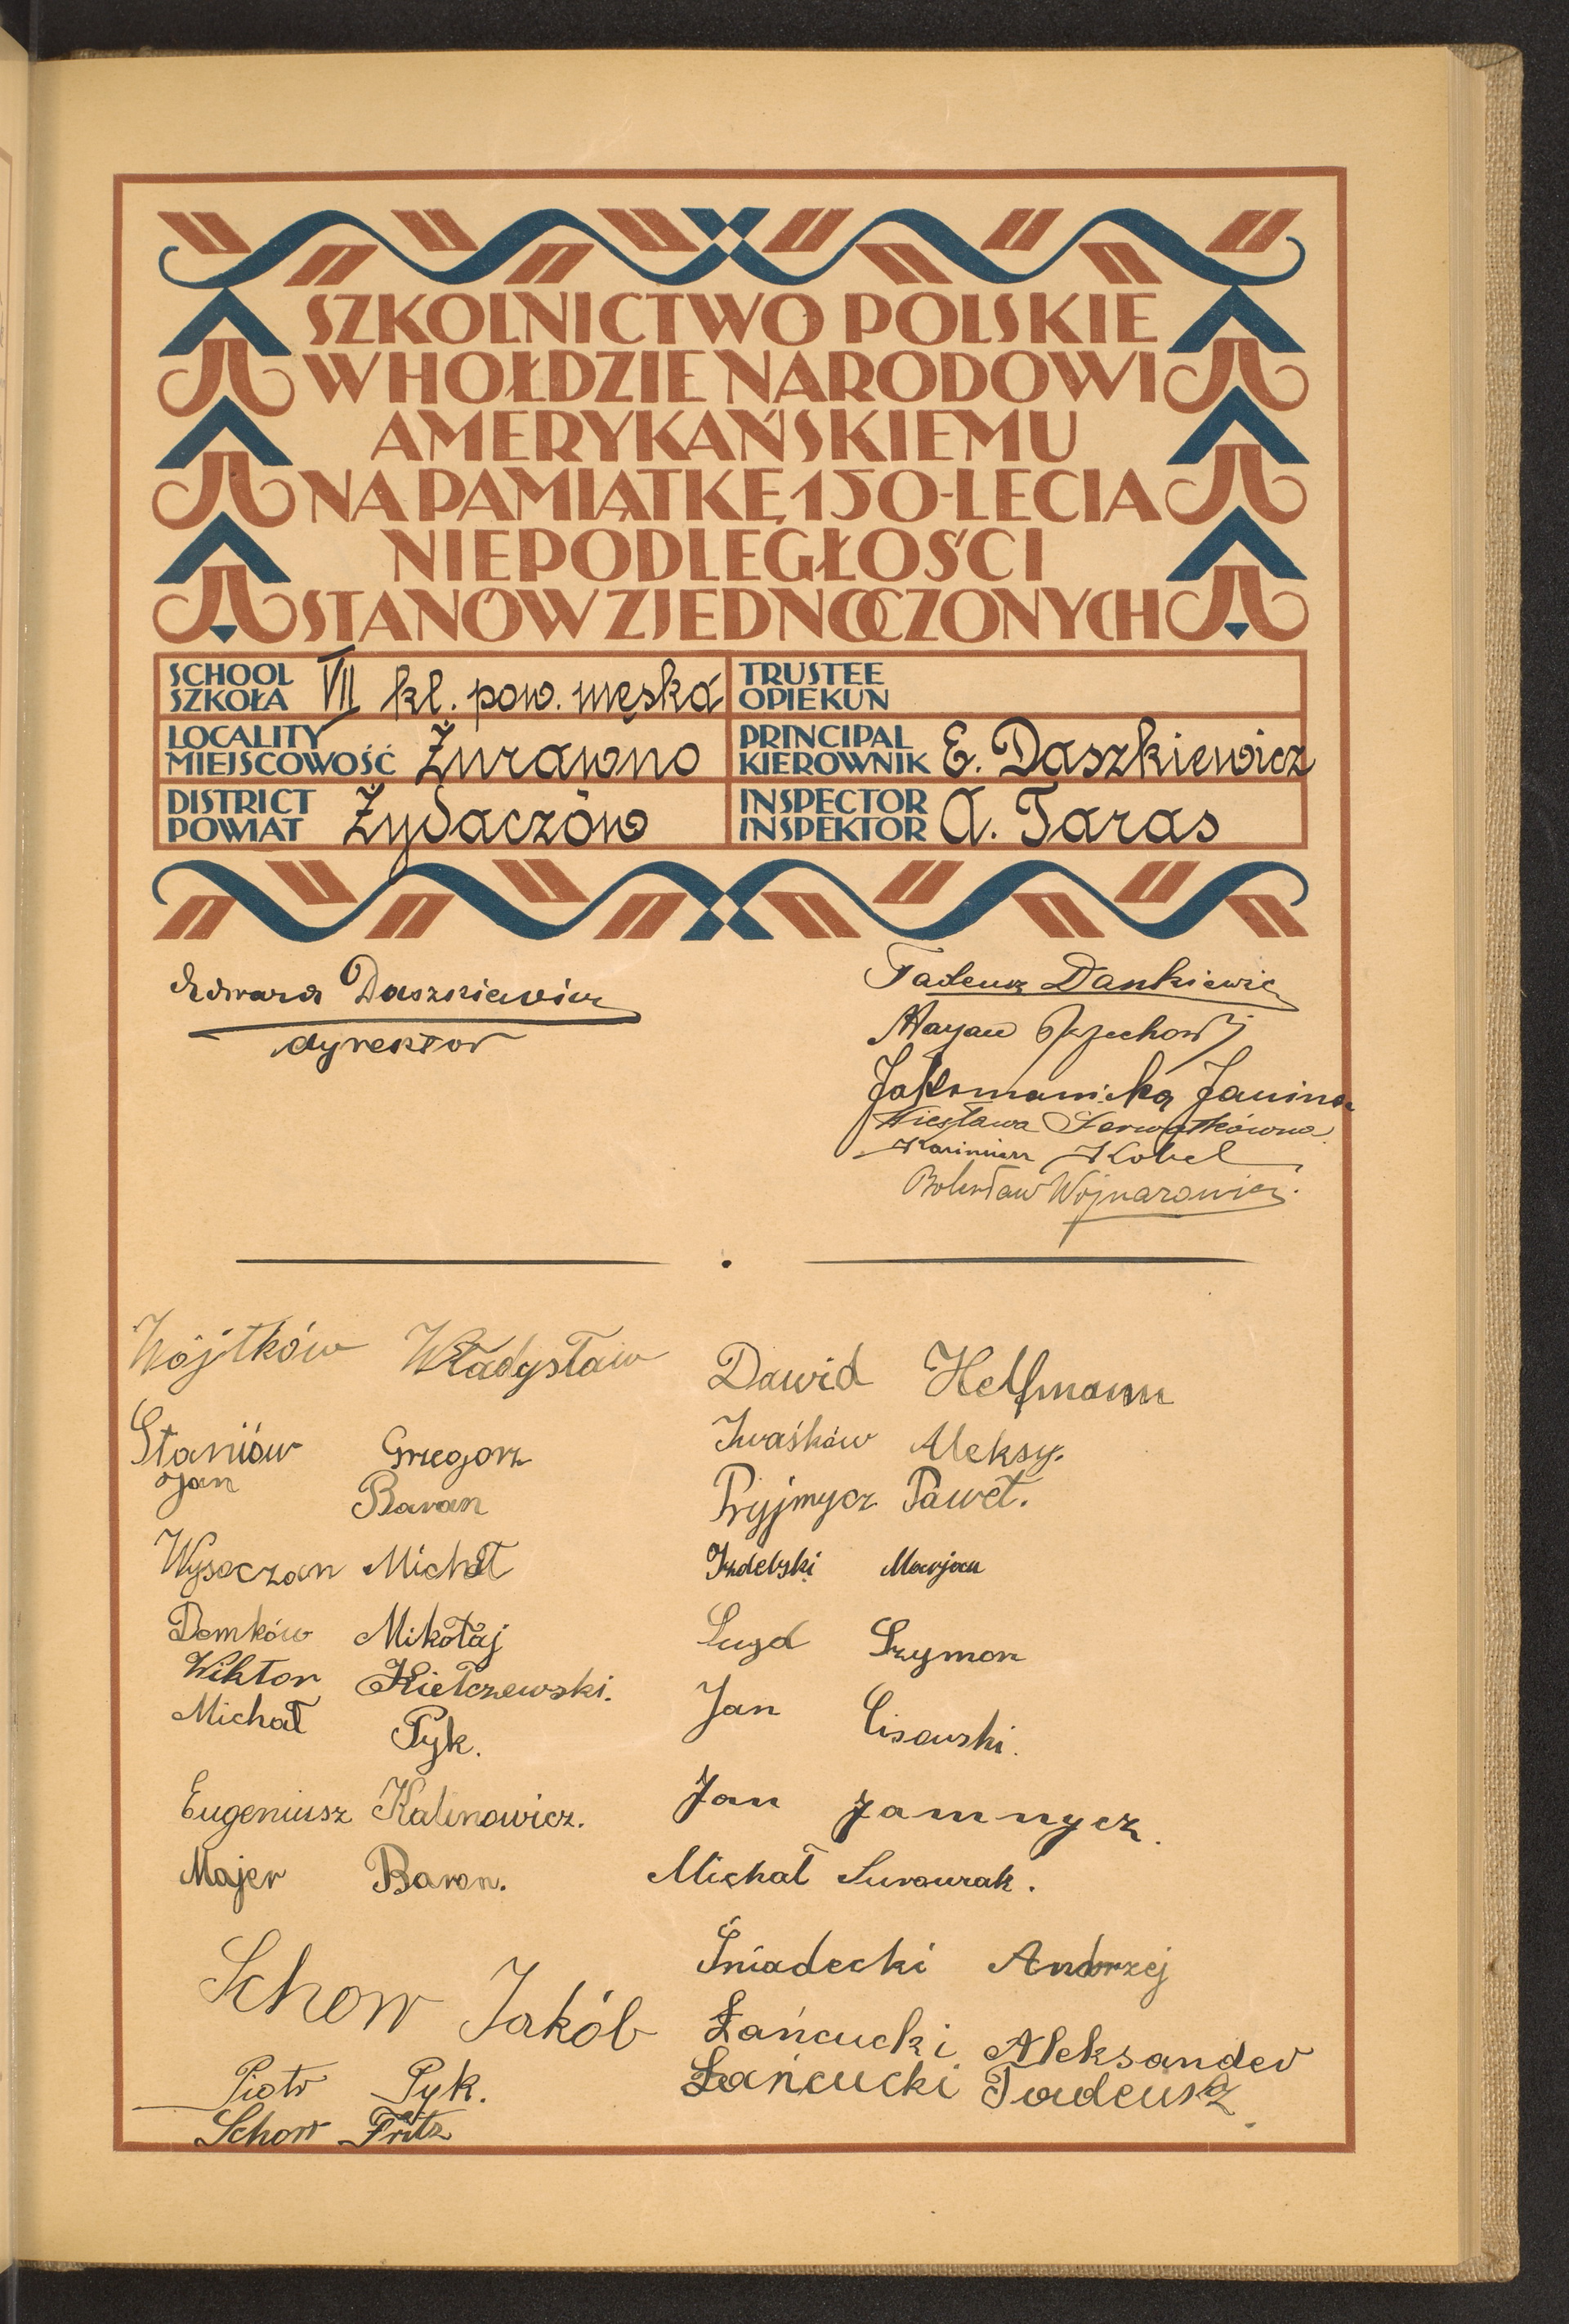 SZKOLNICTWO POLSKIE
W HOŁDZIE NARODOWI
AMERYKAŃSKIEMU
NA PAMIĄTKĘ 150-LECIA
NIEPODLEGŁOŚCI
STANÓW ZJEDNOCZONYCH
SCHOOL
SZKOŁA VII kl. pow. męska
TRUSTEE
OPIEKUN
LOCALITY
MIEJSCOWOŚĆ Żurawno
PRINCIPAL
KIEROWNIK E. Daszkiewicz
DISTRICT
POWIAT Żydaczów
INSPECTOR
INSPEKTOR A. Taras
Edward Daszkiewicz
dyrektor
Tadeusz Dankiewicz
Maryan
Janina
Wiesława Serwatkówna
Kazimierz Kobel
Bolesław Wojnarowicz.
Wójtków Władysław
Staniów Grzegorz
Jan Baran
Wysoczan Michał
Demków Mikołaj
Wiktor Kiełczewski.
Michał Pyk.
Eugeniusz Kalinowicz.
Majer Baron.
Schorr Jakób
Piotr Pyk.
Schorr Fritz
Dawid Helfmann
Iwaśków Aleksy.
Pryjmycz Paweł.
Marjan
Szymon
Jan Cisowski.
Jan Jamnycz.
Michał Surowrak.
Śniadecki Andrzej
Łańcucki Aleksander
Łańcucki Tadeusz